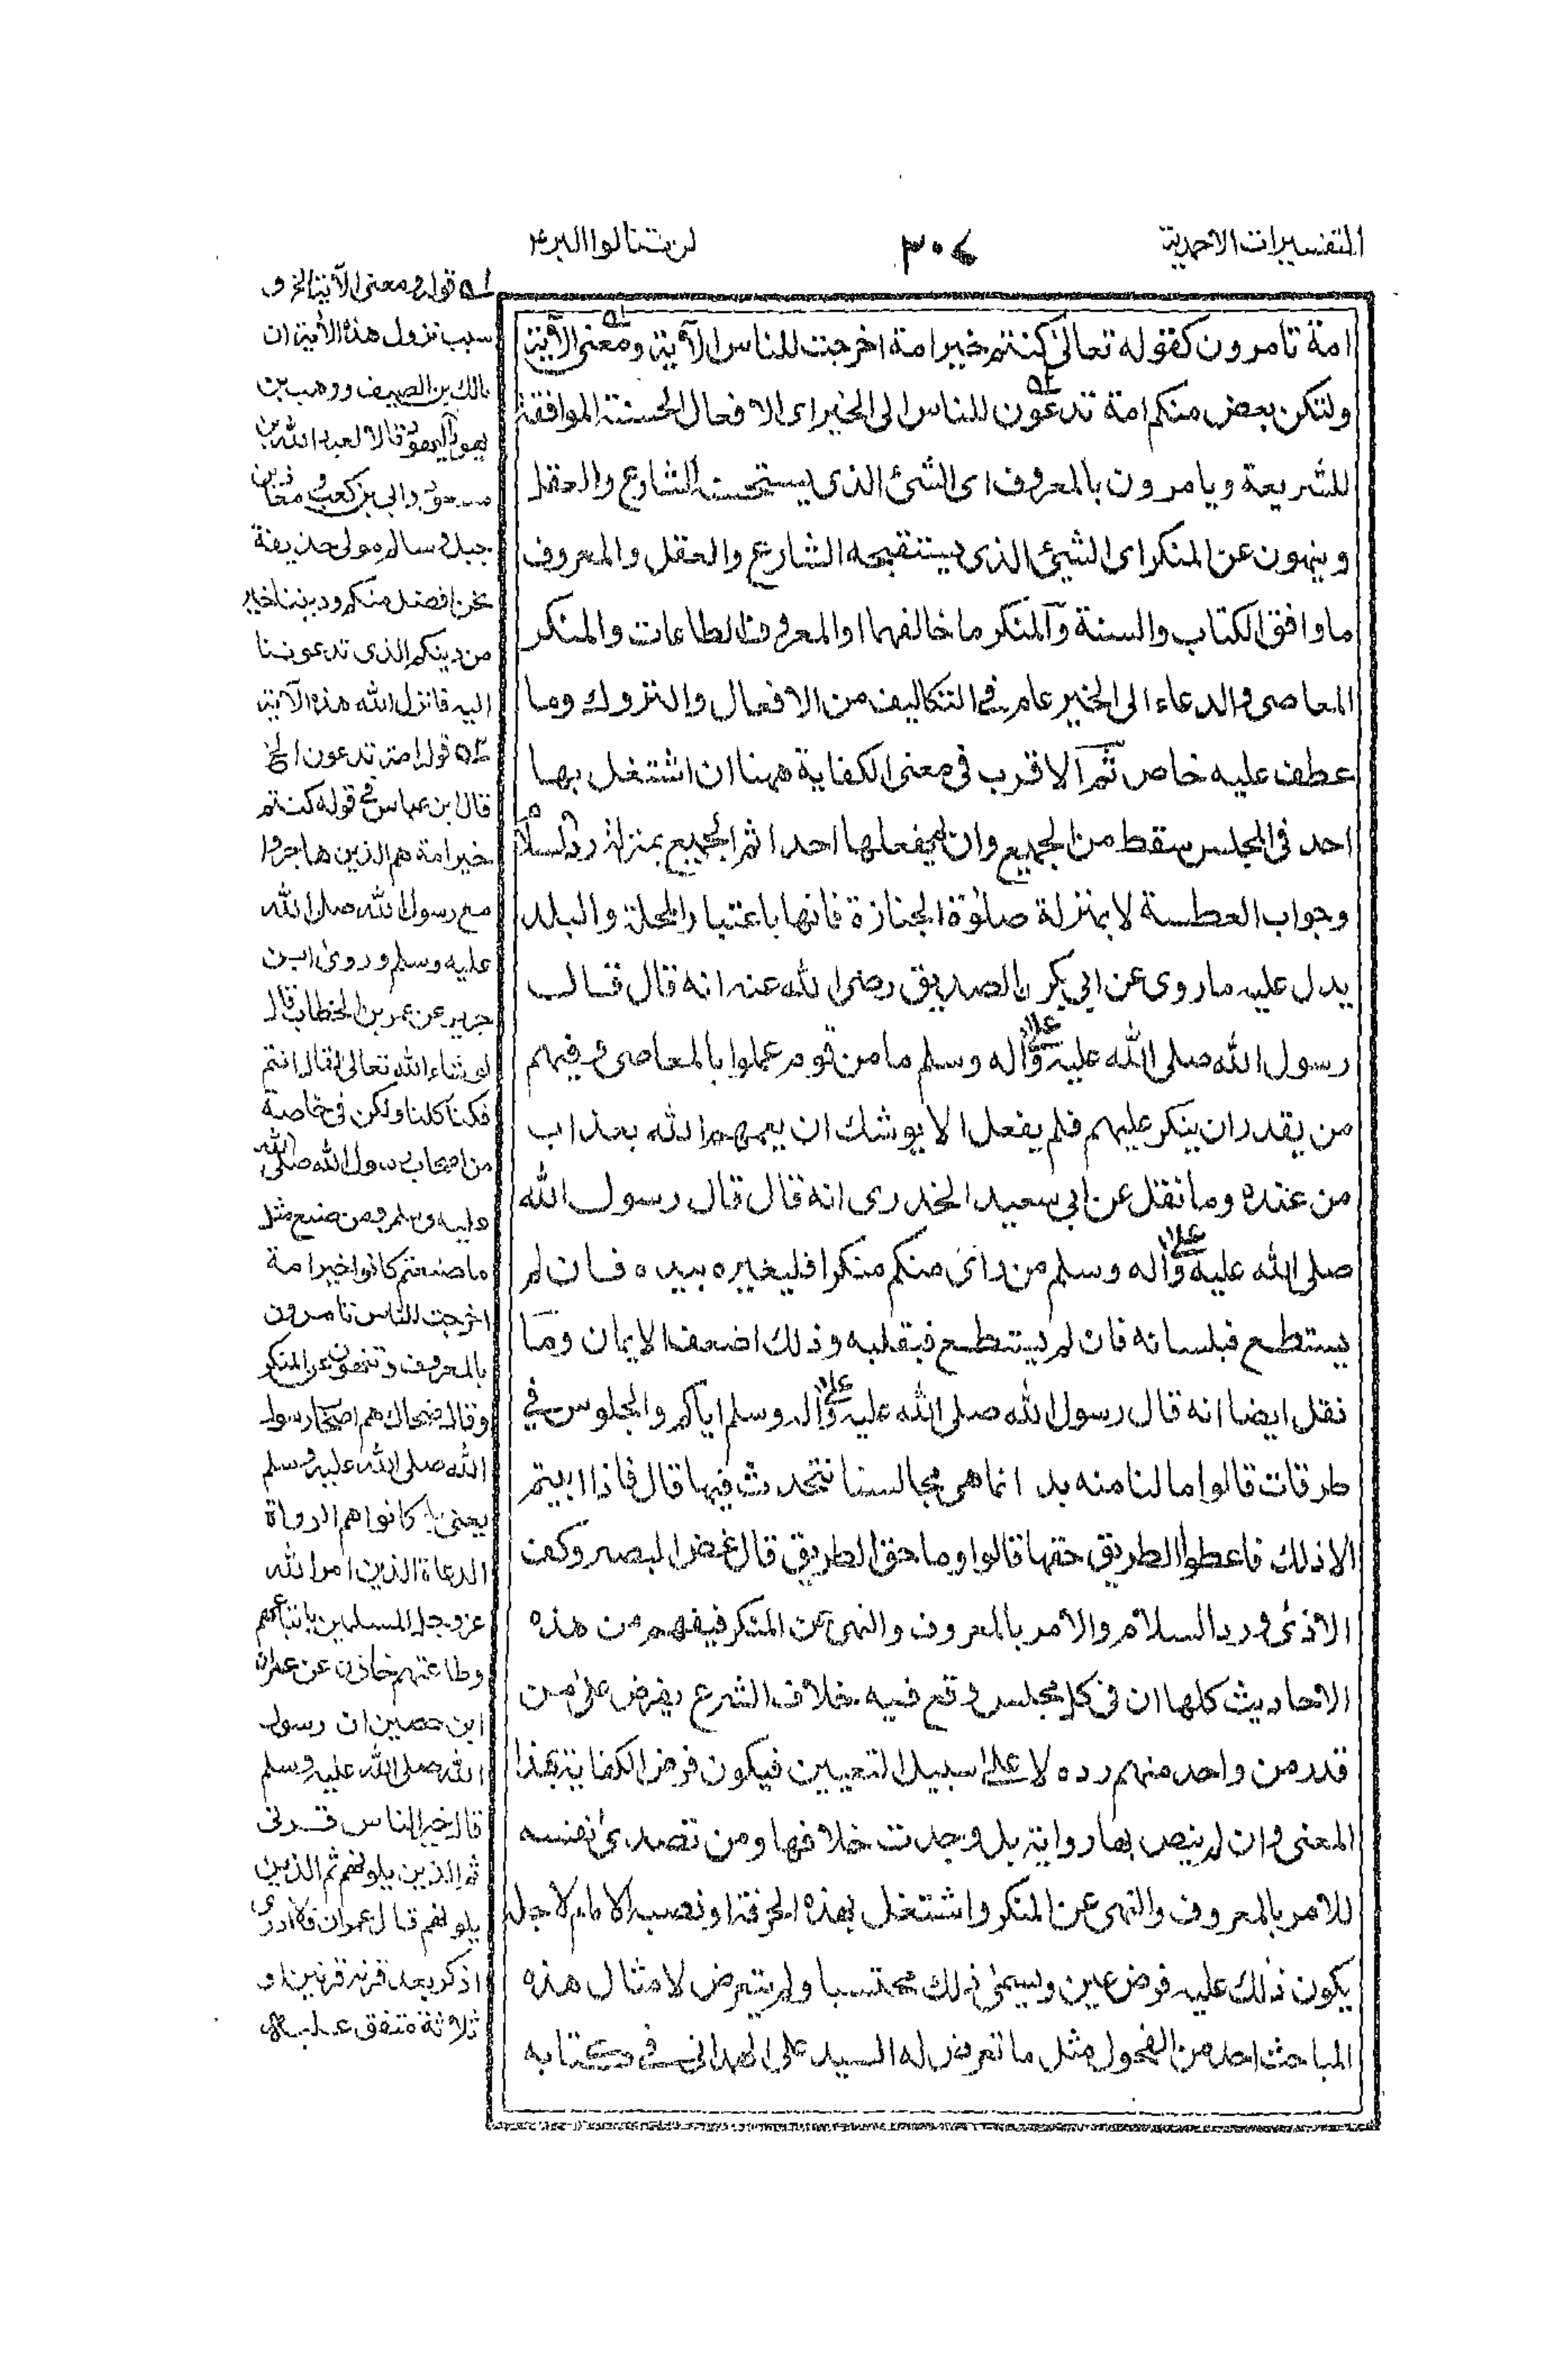 التفسيرات الاحمدية
٣٠٤
لن تنالوا البر ٤
امة تامرون كقوله تعالى كنتم خير امة اخرجت للناس الآية ومعنى الآية
ولتكن بعض منكم امة تدعون للناس الى الخير اى الافعال الحسنة الموافقة
للشريعة ويامرون بالمعروف اى الشئ الذى يستحسنه الشارع والعقل
وينهون عن المنكر اى الشيئ الذى يستقبحه الشارع والعقل والمعروف
ما وافق الكتاب والسنة والمنكر ما خالفهما او المعروف الطاعات والمنكر
المعاصى والدعاء الى الخير عام فى التكاليف من الافعال والتروك وما
عطف عليه خاص ثم الاقرب فى معنى الكفاية ههنا ان اشتغل بها
احد فى المجلس سقط من الجميع وان لم يفعلها احد اثم الجميع بمنزلة رد السلام
وجواب العطسة لا بمنزلة صلوٰة الجنازة فانها باعتبار المحلة والبلد
يدل عليه ما روى عن ابى بكر ن الصديق رضى الله عنه انه قال قال
رسول الله صلى الله عليه وعلىٰ اٰله وسلم ما من قوم عملوا بالمعاصى وفيهم
من يقدر ان ينكر عليهم فلم يفعل الا يوشك ان يعمهم الله بعذاب
من عنده وما نقل عن ابى سعيد الخدرى انه قال قال رسول الله
صلى الله عليه وعلىٰ اٰله وسلم من رائ منكم منكرا فليغيره بيده فان لم
يستطع فبلسانه فان لم يستطع فبقلبه وذلك اضعف الايمان وما
نقل ايضا انه قال رسول الله صلى الله عليه وعلىٰ اٰله وسلم اياكم والجلوس فى
طرقات قالوا ما لنا منه بد انما هى مجالسنا نتحدث فيها قال فاذا ابيتم
الا ذلك فاعطوا الطريق حقها قالوا وما حق الطريق قال غض البصر وكف
الاذى ورد السلام والامر بالمعروف والنهى عن المنكر فيفهم من هذه
الاحاديث كلها ان فى كل مجلس وقع فيه خلاف الشرع يفرض على من
قدر من واحد منهم رده لا على سبيل التعيين فيكون فرض الكفاية بهذا
المعنى وان لم ينص بها رواية بل وجدت خلافها ومن تصدى نفسه
للامر بالمعروف والنهى عن المنكر واشتغل بهذه الحرفة او نصبه الامام لاجله
يكون ذلك عليه فرض عين ويسمىٰ ذلك محتسبا ولم يتعرض لامثال هذه
المباحث احد من الفحول مثل ما تعرض له السيد على الهدانى فى كتابه
١ه قوله ومعنى الآية الخ و
سبب نزول هذه الآية ان
مالك بن الصيف ووهب بن
يهودا اليهوديين قالا لعبد الله بن
مسعود وابى بن كعب ومعاذ بن
جبل وسالم مولى حذيفة
نحن افضل منكم وديننا خير
من دينكم الذى تدعوننا
اليه فانزل الله هذه الآية
٢ه قوله امة تدعون الخ
قال ابن عباس فى قوله كنتم
خير امة هم الذين هاجروا
مع رسول الله صلى الله
عليه وسلم وروىٰ ابن
جرير عن عمر بن الخطاب قال
لو شاء الله تعالى لقال انتم
فكنا كلنا ولكن فى خاصة
من اصحاب رسول الله صلى الله
عليه وسلم ومن صنع مثل
ما صنعتم كانوا خير امة
اخرجت للناس تامرون
بالمعروف وتنهون عن المنكر
وقال ضحاك هم اصحاب رسول
الله صلى الله عليه وسلم
يعنى كانوا هم الرواة
الدعاة الذين امر الله
عز وجل المسلمين باتباعهم
وطاعتهم خازن عن عمران
ابن حصين ان رسول
الله صلى الله عليه وسلم
قال خير الناس قرنى
ثم الذين يلونهم ثم الذين
يلونهم قال عمران فلا ادرى
اذكر بعد قرنه قرنين او
ثلاثة متفق عليه